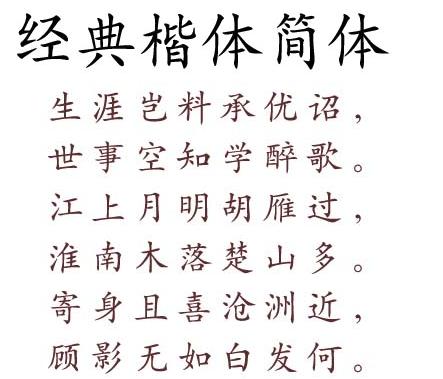 经典楷体简体
生涯岂料承优诏，
世事空知学醉歌。
江上月明胡雁过，
淮南木落楚山多。
寄身且喜沧洲近，
顾影无如白发何。